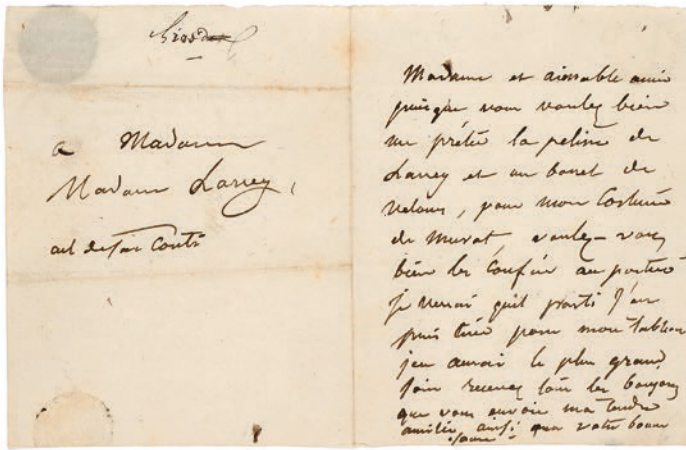 Girodet
a Madame
Madame Larrey,
Conti
Madame et aimable amie
puisque vous voulez bien
me prêter la pelisse de
Larrey et un bonet de
velours, pour mon costume
de Murat, voulez-vous
bien les confier au porteur
je verrai quel parti j'en
puis tirer pour mon tableau
j'en aurai le plus grand
soin recevez tous les bonjours
que vous envoie ma tendre
amitié ainsi qu'a votre bonne